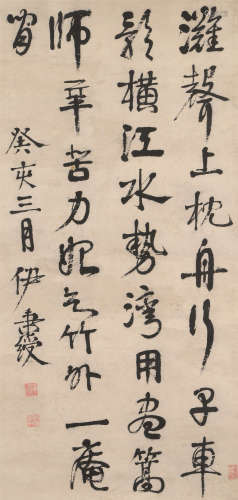 灘聲上枕舟行早車
影橫江水勢灣用盡篙
師辛苦力竹外一庵
閒
癸亥三月伊秉綬